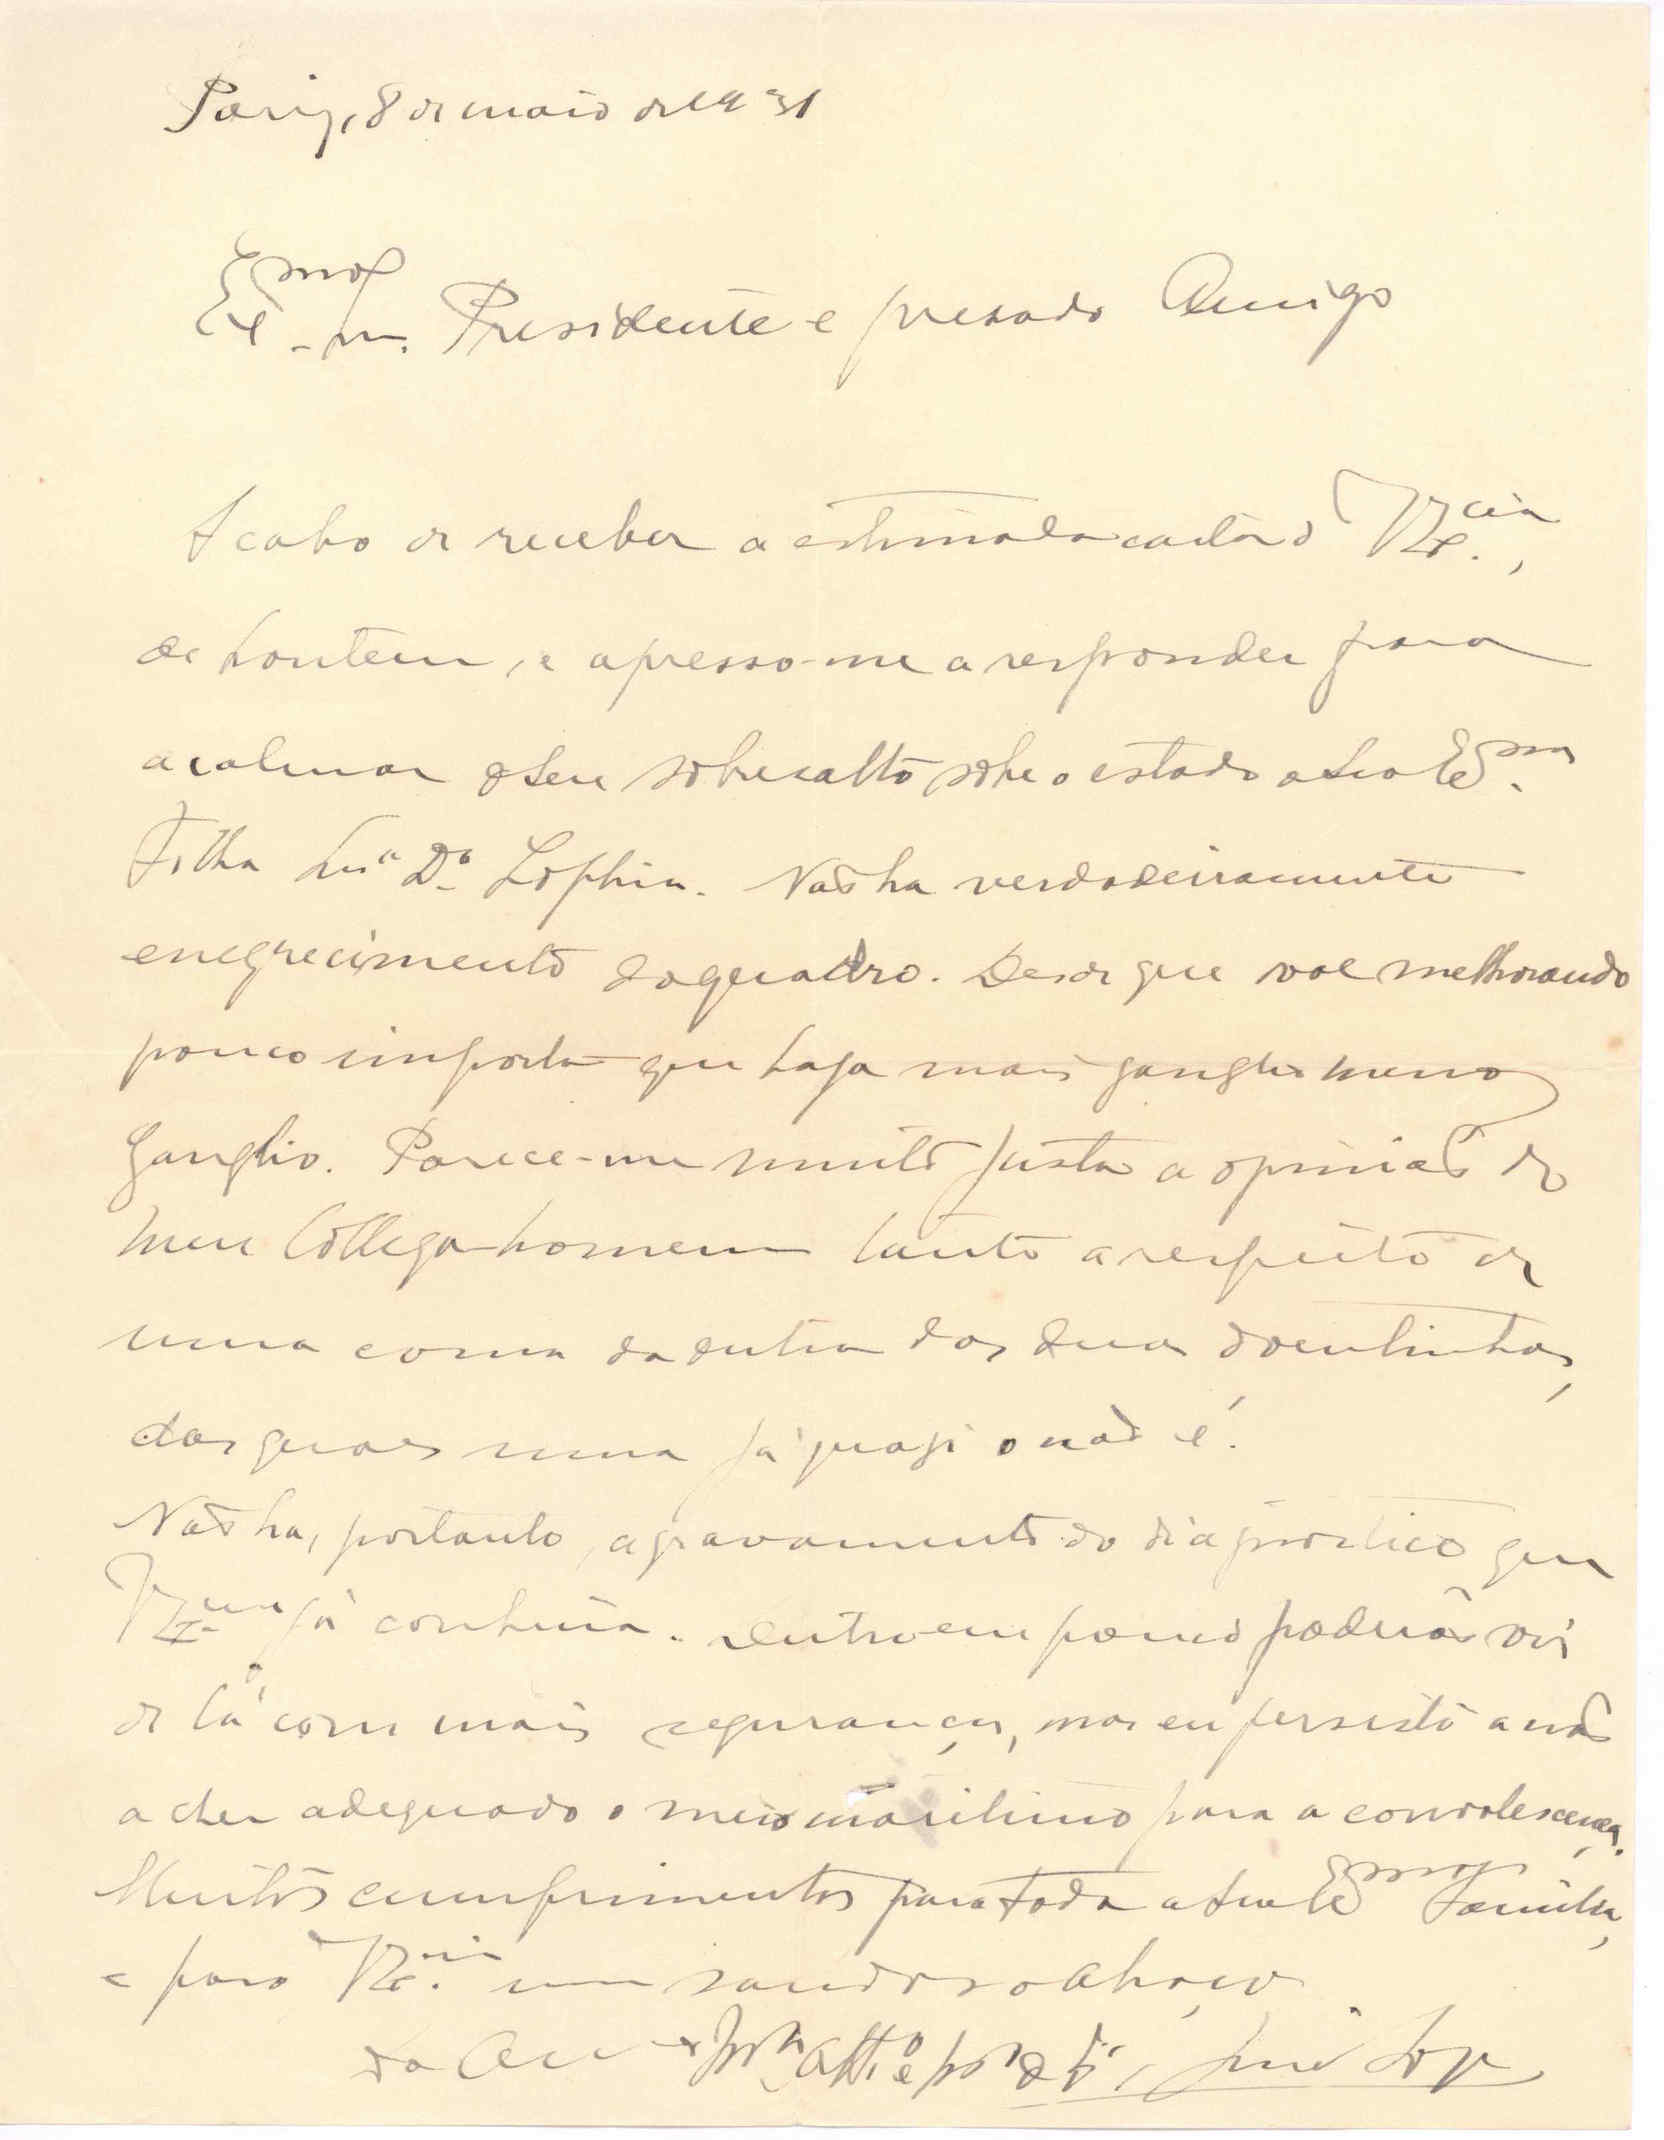 Pariz, 8 de maio de 1931
Exmo Snr. Presidente e presado Amigo
Acabo de receber a estimada carta de V. Excia.,
de hontem, e apresso-me a responder para
acalmar o seu sobresalto sobre o estado a sua Exma.
Filha Snra Da. Sophia. Não ha verdadeiramente
enegrecimento do quadro. Desde que vae melhorando
pouco importa que haja mais ganglio menos
ganglio. Parece-me muito justa a opinião do
meu Collega homem tanto a respeito de
uma como da outra das duas doentinhas,
das quaes uma já quasi o não é.
Não ha, portanto, agravamento do diagnostico que
V. Excia. já conhecia. Dentro em pouco poderão vir
de lá com mais segurança, mas eu persisto a não
achar adequado o meio maritimo para a convalescença.
Muitos cumprimentos para toda a sua Exma Familia,
e para V. Excia. um saudoso abraço
do